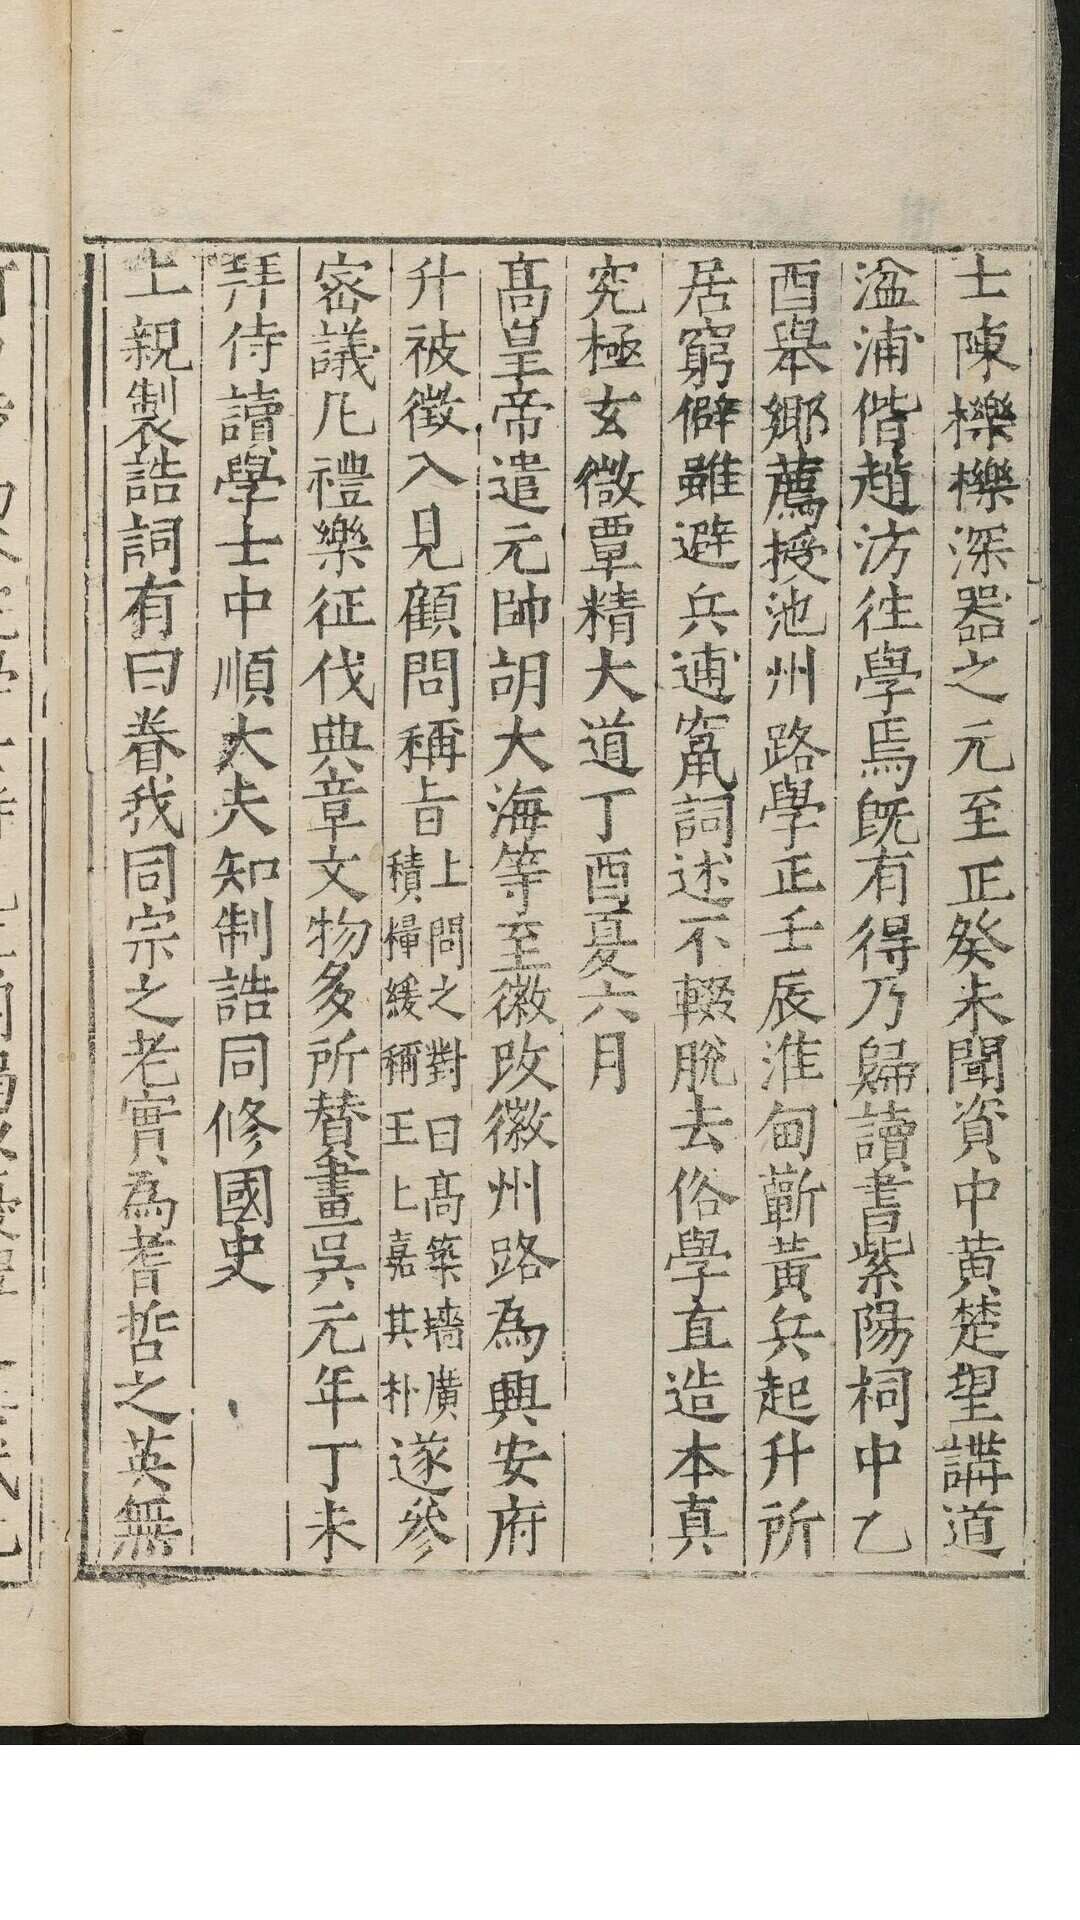 士陳櫟櫟深器之元至正癸未聞資中黃楚望講道
湓浦偕趙汸往學焉旣有得乃歸讀書紫陽祠中乙
酉舉鄉薦授池州路學正壬辰淮甸蘄黃兵起升所
居窮僻雖避兵逋竄詞述不輟脫去俗學直造本真
究極玄微覃精大道丁酉夏六月
高皇帝遣元帥胡大海等至徽改徽州路為興安府
升被徵入見顧問稱旨上問之對曰高築墻廣積糧緩稱王上嘉其朴遂參
密議凡禮樂征伐典章文物多所贊畫吳元年丁未
拜侍讀學士中順大夫知制誥同修國史
上親製誥詞有曰眷我同宗之老實為耆哲之英無